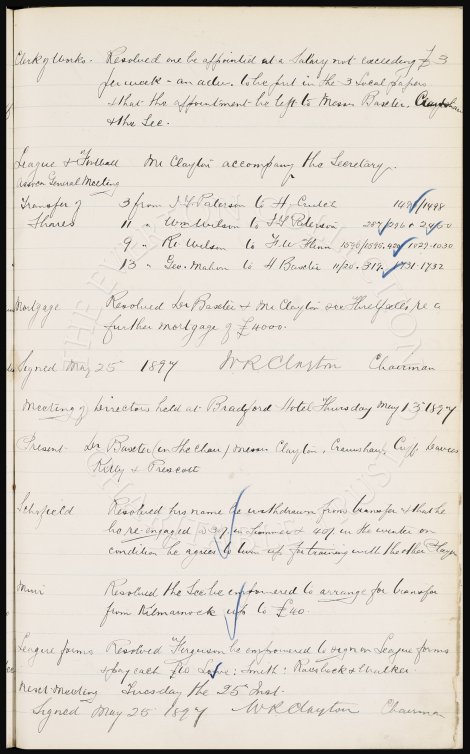 Clerk of Works. Resolved one be appointed at a Salary not exceeding £3
per week - an adver. to be put in the 3 Local papers
& that the appointment be left to Messrs Baxter.
& the Sec.
League & Football Mr Clayton accompany the Secretary.
Assocn General Meeting
Transfer of 3 from J Y Paterson to H. 1498
Shares 11 " Wm Wilson to J Y Paterson
9 " Rt Wilson to F. W. 1029-1030
13 " Geo. Mahon to H Baxter 1731-1732
Mortgage Resolved Dr Baxter & Mr Clayton see Threlfall's re a
further mortgage of £4000.
Signed May 25 1897 W R Clayton Chairman
Meeting of Directors held at Bradford Hotel Thursday May 13 1897
Present Dr Baxter (in the Chair) Messrs Clayton, Cranshaw, Cuff Leavers
Kirby & Prescott
Schofield Resolved his name be withdrawn from transfer & that he
be re-engaged @ in Summer & 40/ in the winter on
condition he agrees to turn up for training with the other Players
Resolved the Sec be empowered to arrange for transfer
from Kilmarnock up to £40.
League forms Resolved Ferguson be empowered to sign on League forms
& pay each £10 Smith: & Walker.
Next Meeting Tuesday the 25 Inst.
Signed May 25 1897 W R Clayton Chairman